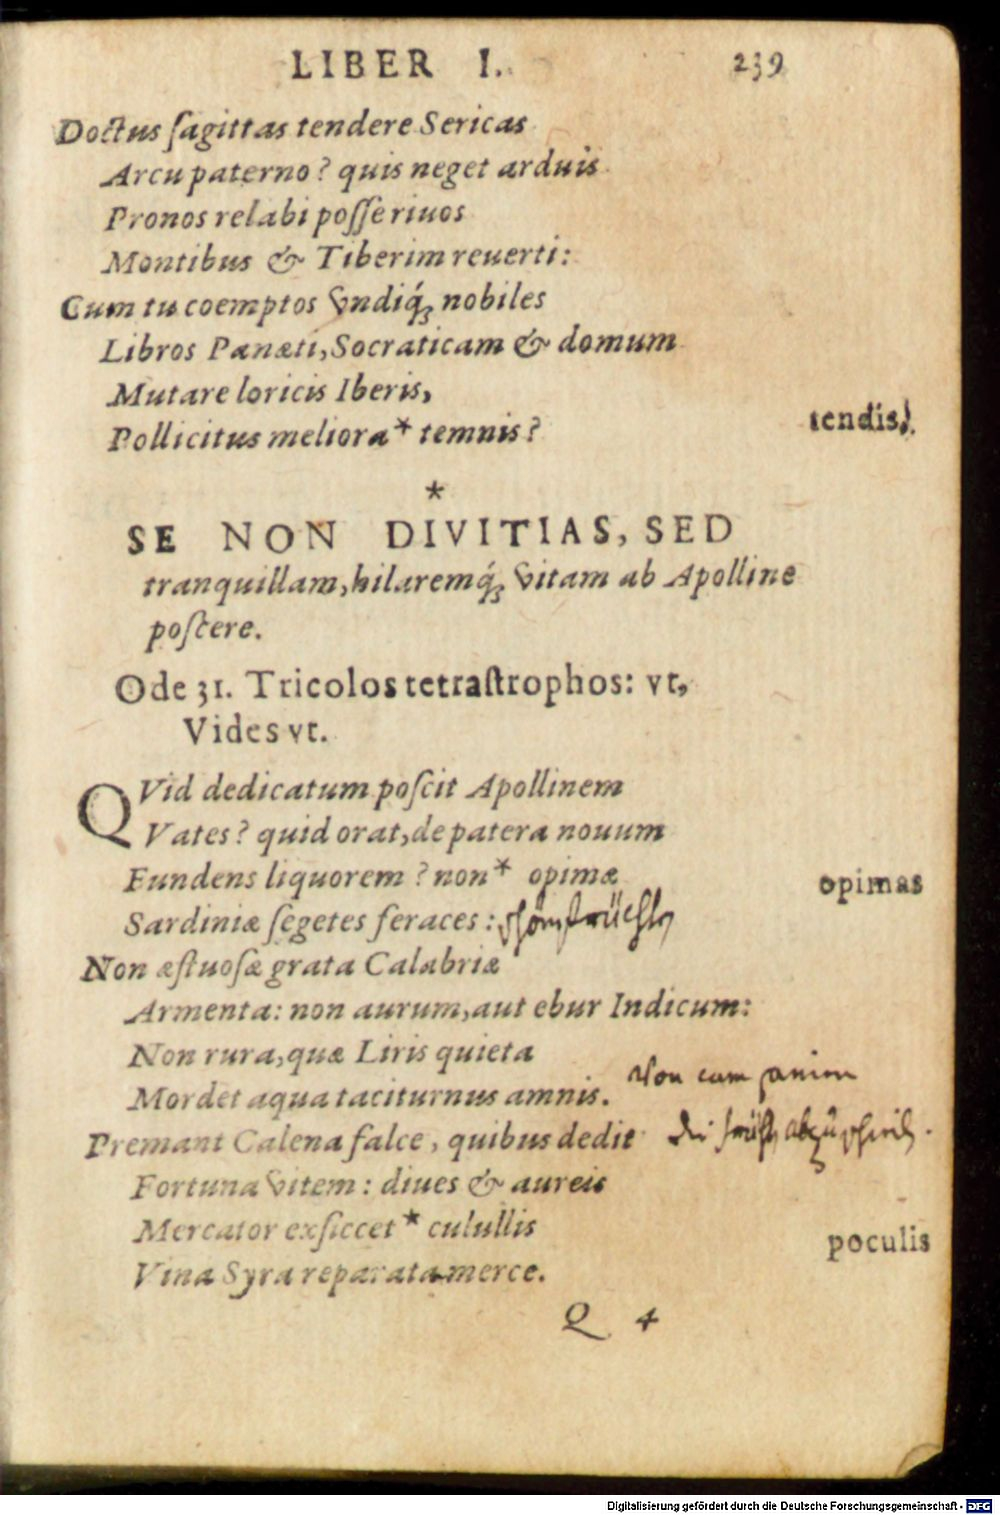 LIBER I. 239
Doctus ſagittas tendere Sericas
Arcu paterno? quis neget arduis
Pronos relabi poſſe riuos
Montibus & Tiberim reuerti:
Cum tu coemptos vndiq́; nobiles
Libros Panæti, Socraticam & domum
Mutare loricis Iberis,
Pollicitus meliora* temnis? tendis!
*
SE NON DIVITIAS, SED
tranquillam, hilaremq́; vitam ab Apolline
poſcere.
Ode 31. Tricolos tetraſtrophos: vt,
Vides vt.
QVid dedicatum poſcit Apollinem
Vates? quid orat, de patera nouum
Fundens liquorem? non* opimæ opimas
Sardiniæ ſegetes feraces:
Non æſtuoſæ grata Calabriæ
Armenta: non aurum, aut ebur Indicum:
Non rura, quæ Liris quieta
Mordet aqua taciturnus amnis. Von
Premant Calena falce, quibus dedit
Fortuna vitem: diues & aureis
Mercator exſiccet* culullis poculis
Vina Syra reparata merce.
Q 4
Digitalisierung gefördert durch die Deutsche Forschungsgemeinschaft - DFG